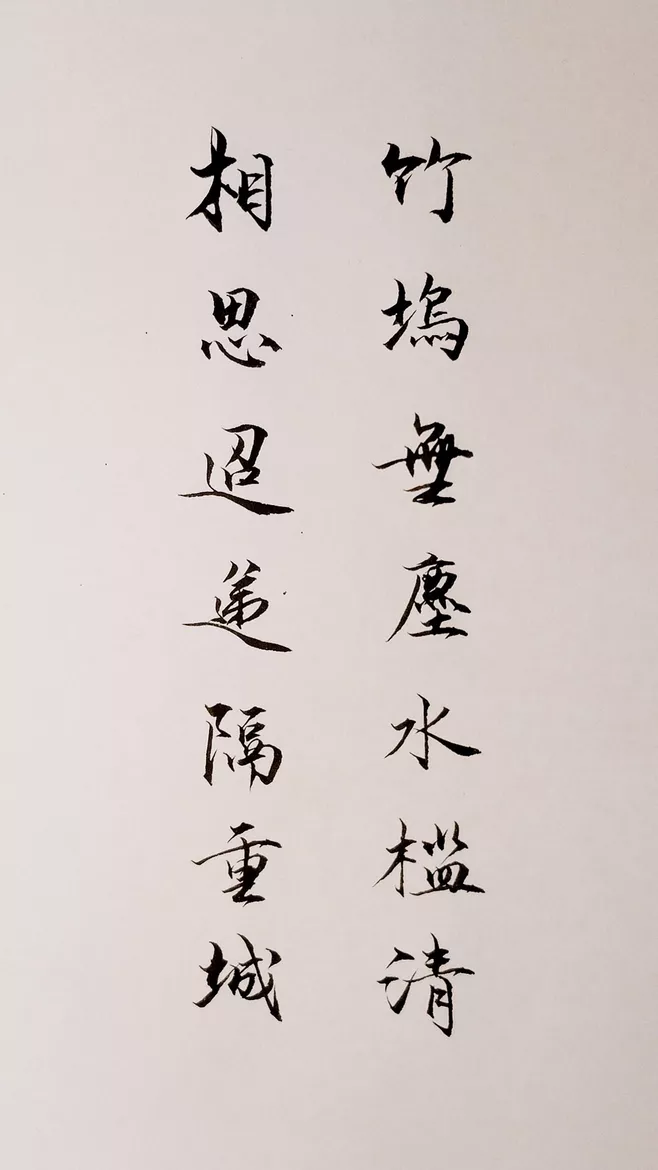 竹塢無塵水槛清
相思迢遞隔重城